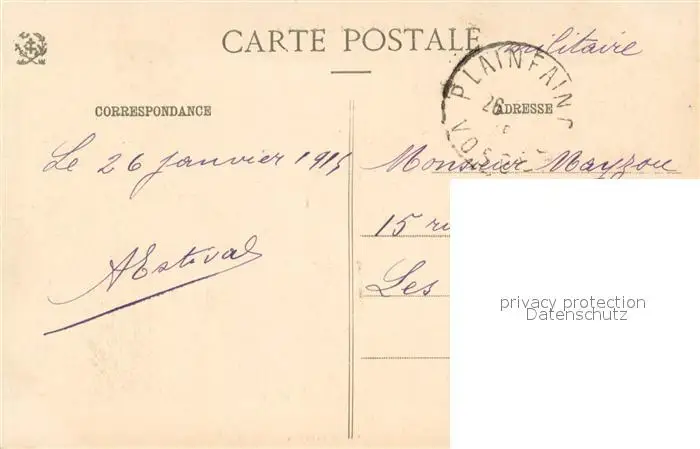 CARTE POSTALE militaire
PLAINFAING
26
CORRESPONDANCE
ADRESSE
Le 26 janvier 1915
Monsieur Mayzou
15
Les
AEstival
privacy protection
Datenschutz